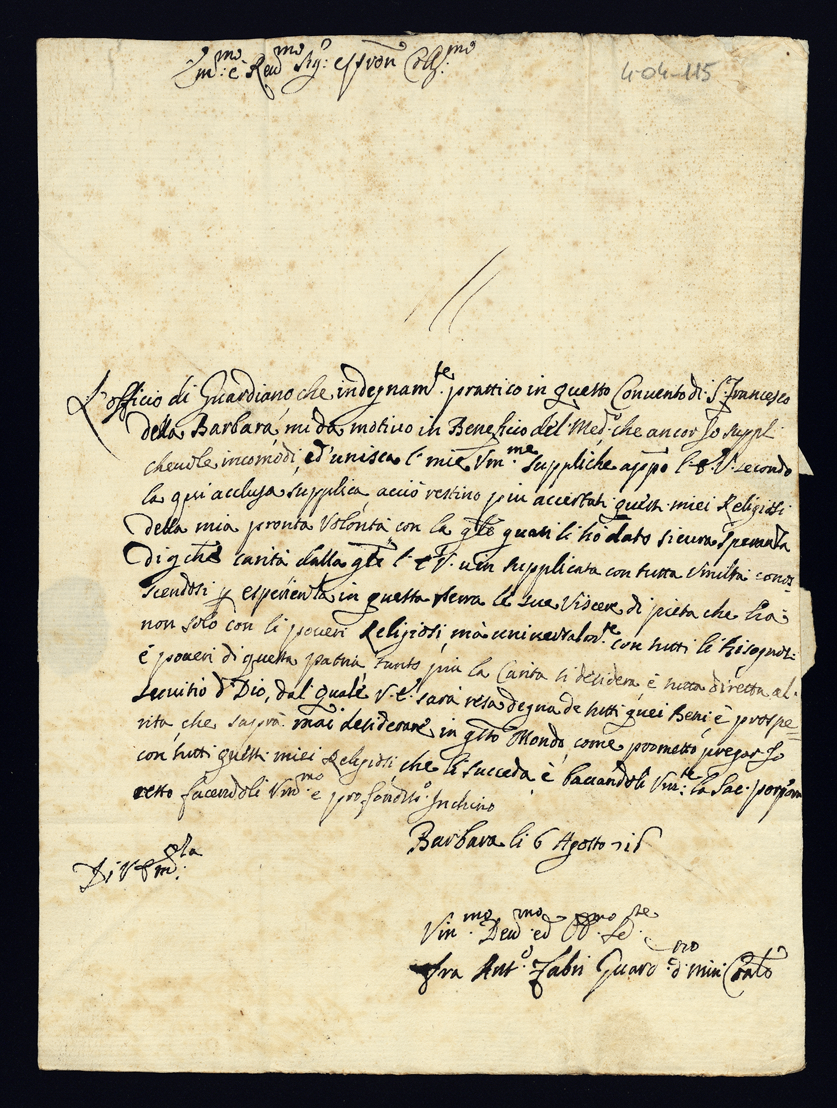 Em.mo è Reu.mo Sig.r e Pron Col.mo
4-04-115
L'officio di Guardiano che indegnam.te prattico in questo Convento di S. Francesco
della Barbara, mi da motivo in Beneficio del Med.o che ancor Io suppl
chevole incomodi, ed unisca l' mie Vm.me suppliche app.o l' E V. secondo
la qui acclusa supplica, acciò restino più accertati questi miei Religiosi
della mia pronta Volontà con la q.le quasi li hò dato sicura Speranza
Di q.che carità dalla q.le l' E V. vien supplicata con tutta Vmiltà conos
scendosi p esperienza in questa Terra le sue Viscere di pietà che hà
non solo con li poveri Religiosi, mà universalm.te con tutti li bisognosi
è poveri di questa patria tanto più la Carità si desidera è tutta diretta al
servitio d'Dio, dal quale V.E. sarà resa degna de tutti quei Beni è prospe=
rità, che saprà mai desiderare in q.sto Mondo, come prometto pregar Io
con tutti questi miei Religiosi, che li succeda, è baciandoli Vm.te la Sac. porpora
resto facendoli Vm.mo è profondiss.o Inchino
Barbara li 6 Agosto 716
Di V Em.za
Vm.mo Deu.mo ed Obb.mo Se.re
Fra Ant.o Fabri Guard.no d. Min. Con.to